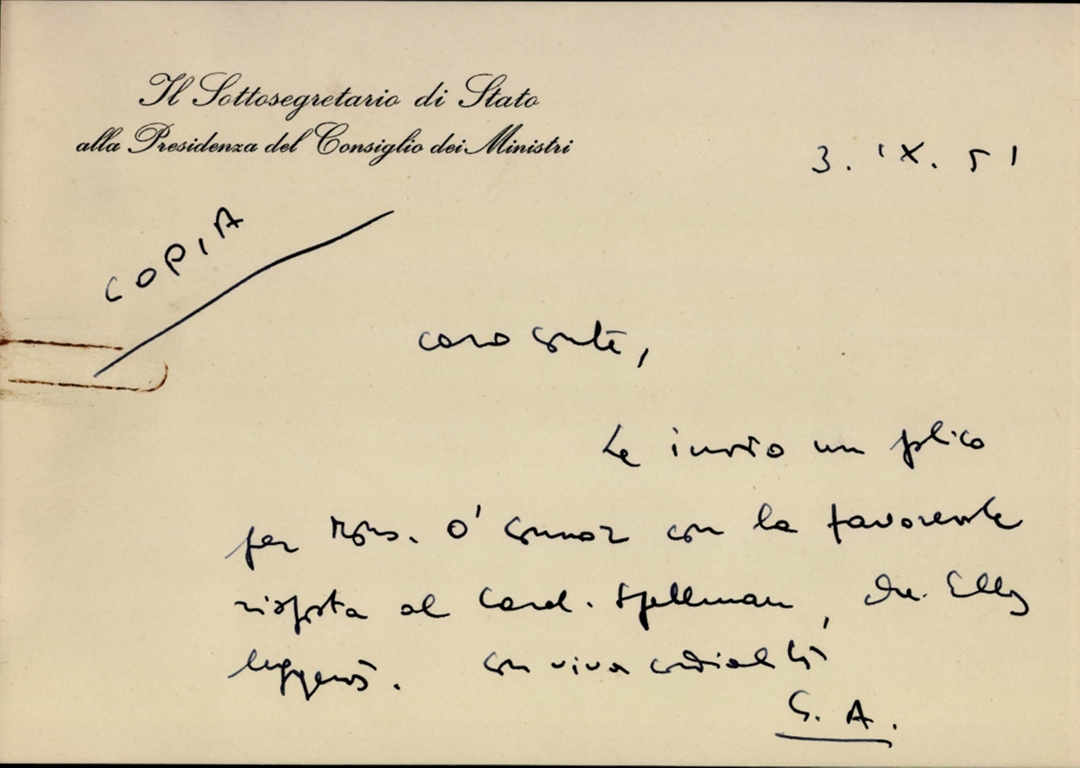 Il Sottosegretario di Stato
alla Presidenza del Consiglio dei Ministri
3. IX. 51
COPIA
Caro Conte,
Le invio un plico
per Mons. O' Connor con la favorevole
risposta al Card. Spellman, che Ella
leggerà. Con viva cordialità
G. A.